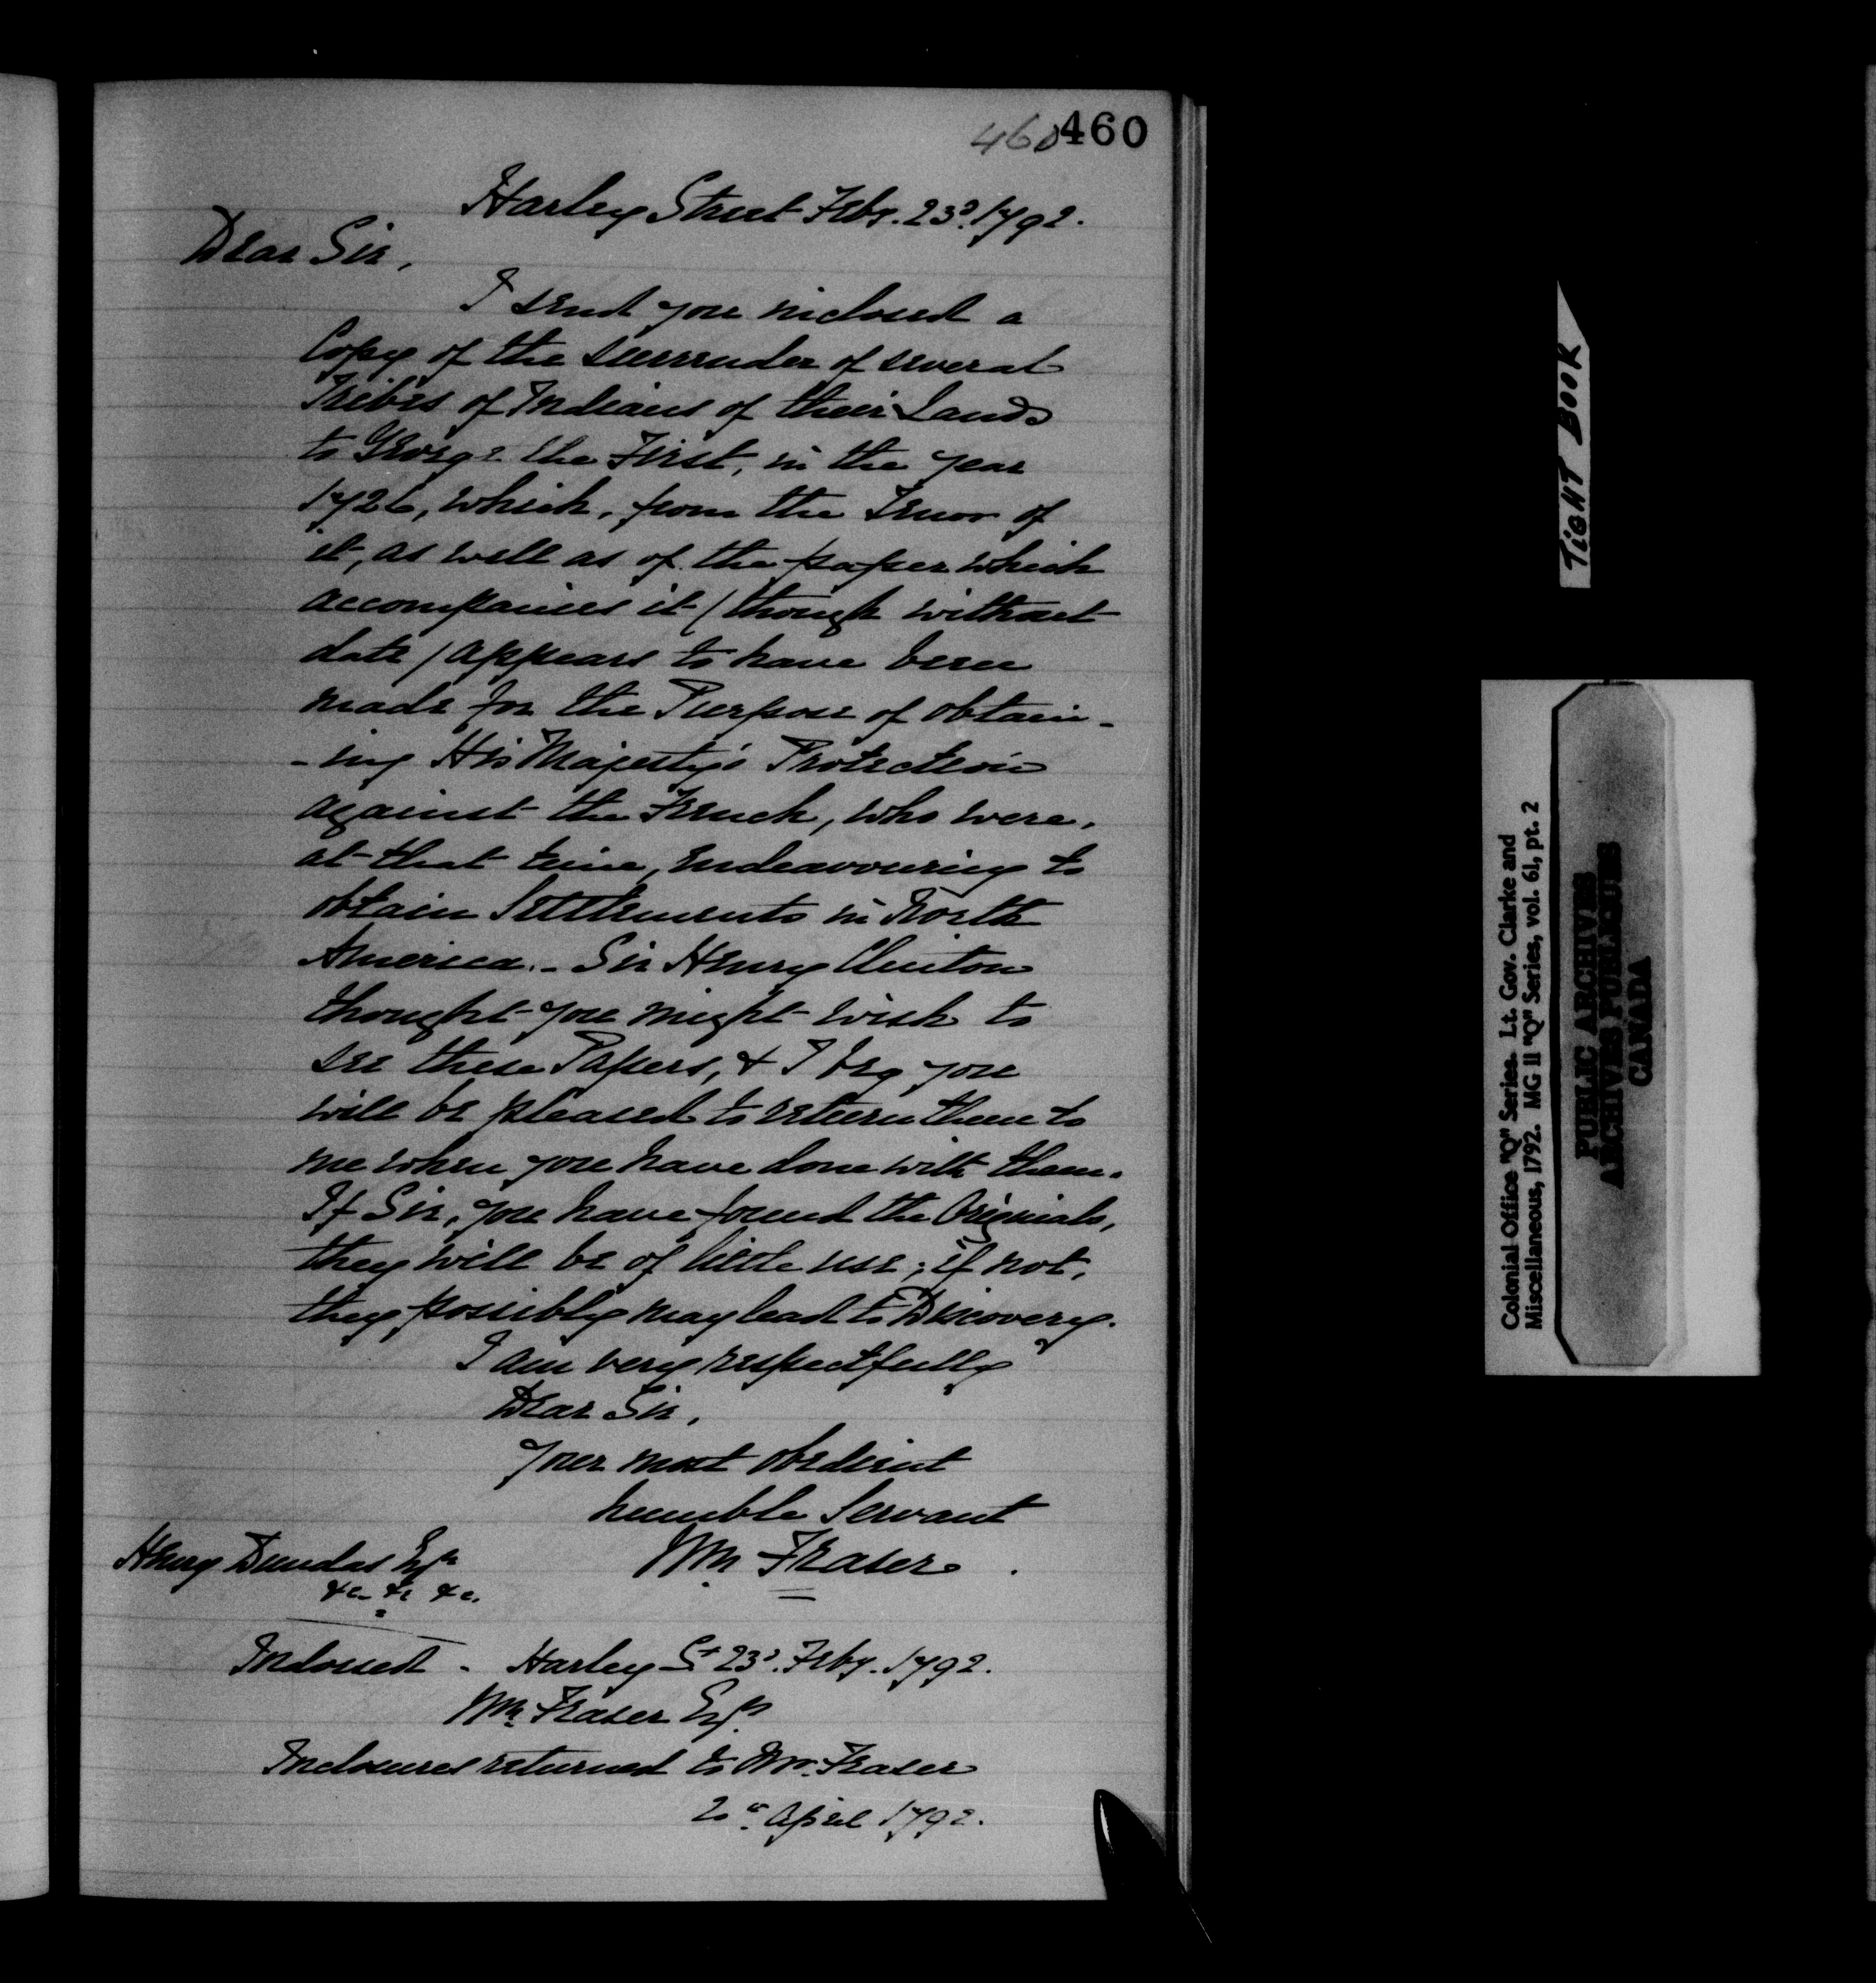 460 460
Harley Street Feby. 23d. 1792.
Dear Sir,
I send you inclosed a
Copy of the surrender of several
Tribes of Indians of their Lands
to George the First, in the year
1726, which, from the Tenor of
it, as well as of the paper which
accompanies it (though without
date) appears to have been
made for the Purpose of obtain-
-ing His Majesty's Protection
against the French, who were,
at that time, endeavouring to
obtain Settlements in North
America. - Sir Henry Clinton
thought you might wish to
see these Papers, & I beg you
will be pleased to return them to
me when you have done with them.
If Sir, you have found the Originals,
they will be of little use; if not,
they possibly may lead to Discovery.
I am very respectfully
Dear Sir,
your most obedient
humble Servant
Wm Fraser.
Henry Dundas Esqr
&c &c &c.
Indorsed - Harley St 23d. Feby. 1792.
Wm. Fraser Esqr.
Inclosures returned to Mr. Fraser
April 1792.
TIGHT BOOK
Colonial Office "Q" Series. Lt. Gov. Clarke and
Miscellaneous, 1792. MG 11 "Q" Series, vol. 61, pt. 2
PUBLIC ARCHIVES
ARCHIVES PUBLIQUES
CANADA